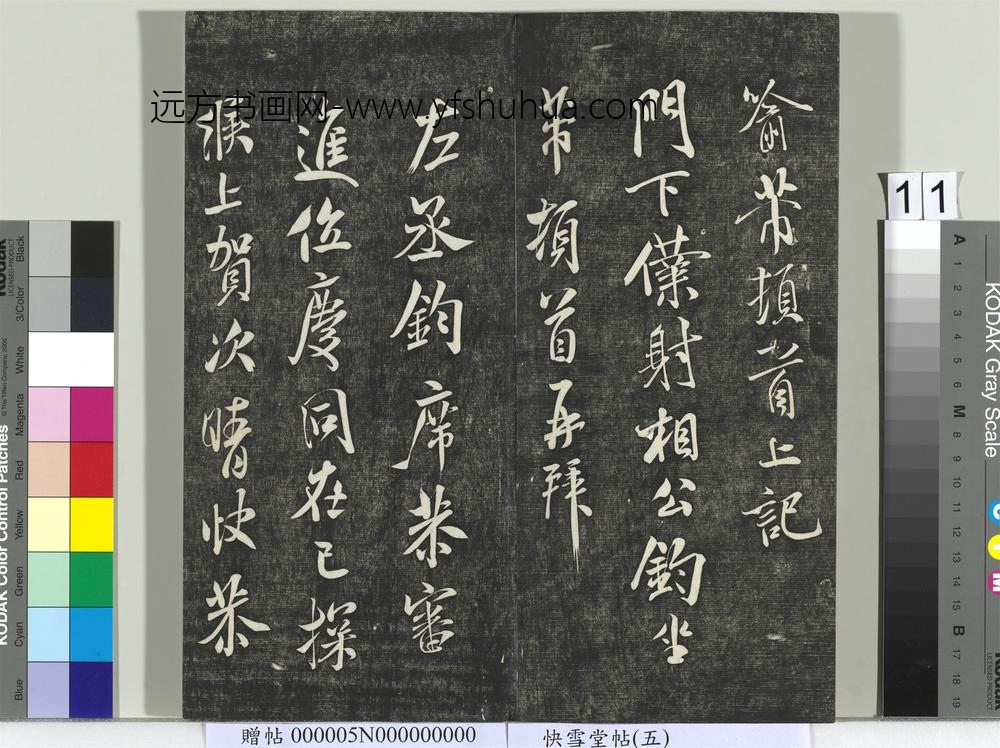 喻芾頓首上記
門下僕射相公鈞坐
芾頓首再拜
左丞鈞席芾審
進位慶同在己探
淚上賀次晴快芾
远方书画网-www.yfshuhua.com
11
贈帖 000005N000000000
快雪堂帖(五)
KODAK Gray Scale
A 1 2 3 4 5 6 M 8 9 10 11 12 13 14 15 B 17 18 19
C Y M
Kodak
LICENSED PRODUCT
KODAK Color Control Patches
© The Tiffen Company, 2000
Blue Cyan Green Yellow Red Magenta White 3/Color Black